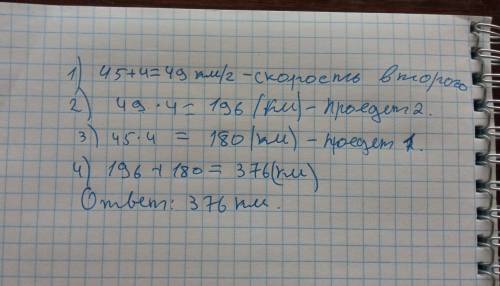 1) 45+4=49 км/г - скорость второго
2) 49·4= 196 (км) - проедет 2.
3) 45·4 = 180 (км) - проедет 1.
4) 196+180= 376(км)
Ответ: 376 км.